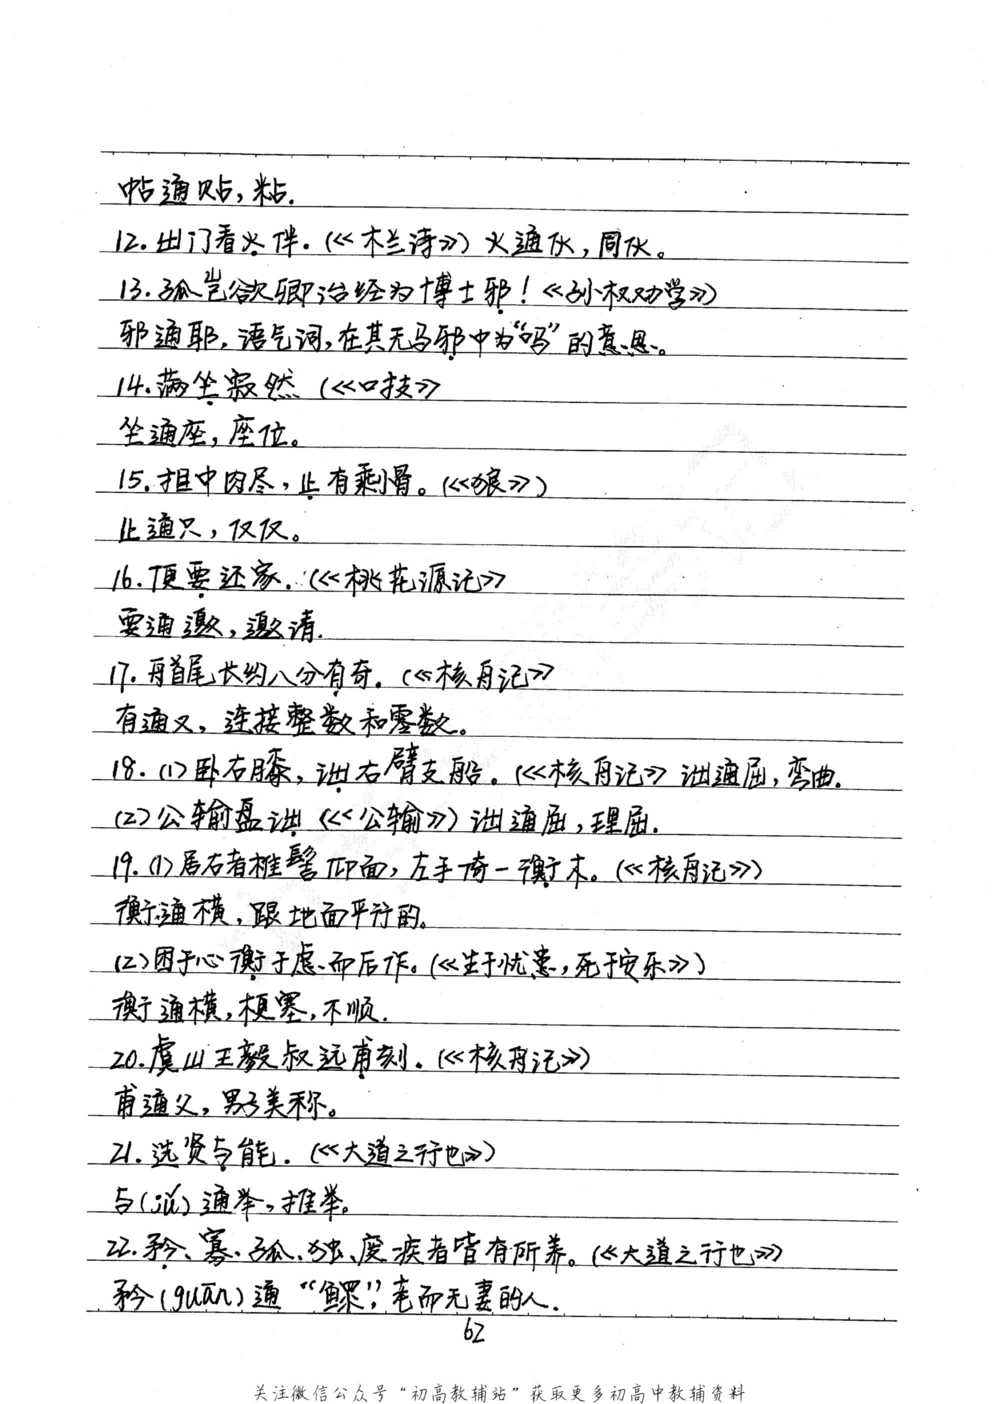 帖通贴，粘.
12.出门看火伴.(《木兰诗》)火通伙，同伙。
13.孤岂欲卿治经为博士邪！《孙权劝学》)
邪通耶，语气词，在其无马邪中为“吗”的意思。
14.满坐寂然(《口技》
坐通座，座位。
15.担中肉尽，止有剩骨。(《狼》)
止通只，仅仅。
16.便要还家.(《桃花源记》
要通邀，邀请.
17.舟首尾长约八分有奇.(《核舟记》
有通又，连接整数和零数。
18.(1)卧右膝，诎右臂支船。(《核舟记》诎通屈，弯曲.
(2)公输盘诎(《公输》)诎通屈，理屈.
19.(1)居右者椎髻仰面，左手倚一衡木。(《核舟记》)
衡通横，跟地面平行的。
(2)困于心衡于虑而后作。(《生于忧患，死于安乐》)
衡通横，梗塞，不顺.
20.虞山王毅叔远甫刻.(《核舟记》)
甫通父，男子美称。
21.选贤与能.(《大道之行也》)
与(jǔ)通举，推举。
22.矜、寡、孤、独、废疾者皆有所养。(《大道之行也》)
矜(guān)通“鳏”，老而无妻的人.
62
关注微信公众号“初高教辅站”获取更多初高中教辅资料